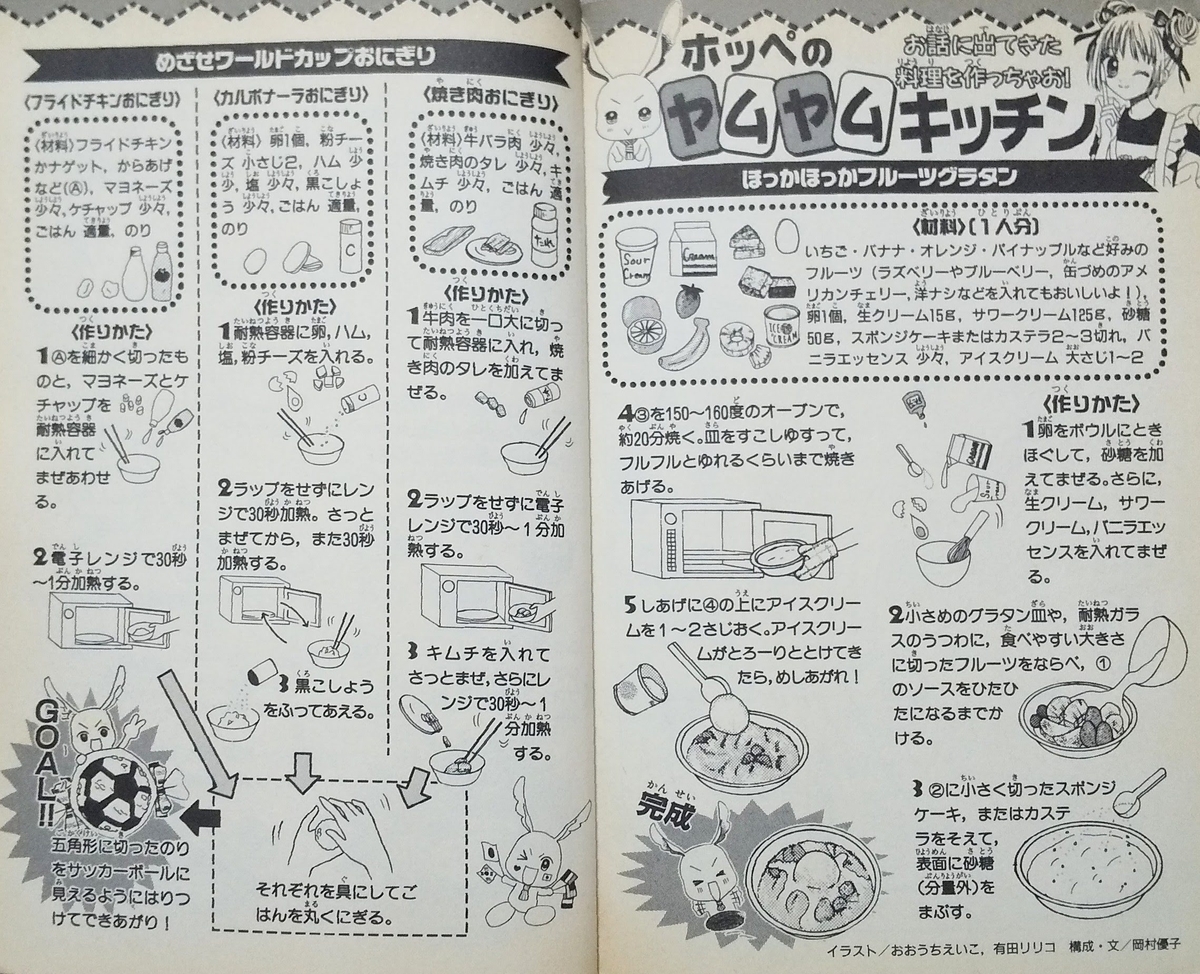 ホッペの
お話に出てきた
料理を作っちゃお!
ヤムヤムキッチン
ほっかほっかフルーツグラタン
〈材料〉(1人分)
いちご・バナナ・オレンジ・パイナップルなど好みの
フルーツ(ラズベリーやブルーベリー,缶づめのアメ
リカンチェリー,洋ナシなどを入れてもおいしいよ!),
卵1個,生クリーム15g,サワークリーム125g,砂糖
50g,スポンジケーキまたはカステラ2〜3切れ,バ
ニラエッセンス 少々,アイスクリーム 大さじ1〜2
Sour
Cream
Cream
ICE
CREAM
〈作りかた〉
1卵をボウルにとき
ほぐして,砂糖を加
えてまぜる。さらに,
生クリーム,サワー
クリーム,バニラエッ
センスを入れてまぜ
る。
2小さめのグラタン皿や,耐熱ガラ
スのうつわに,食べやすい大きさ
に切ったフルーツをならべ,①
のソースをひたひ
たになるまでか
ける。
3②に小さく切ったスポンジ
ケーキ,またはカステ
ラをそえて,
表面に砂糖
(分量外)を
まぶす。
4③を150〜160度のオーブンで,
約20分焼く。皿をすこしゆすって,
フルフルとゆれるくらいまで焼き
あげる。
5しあげに④の上にアイスクリー
ムを1〜2さじおく。アイスクリー
ムがとろーりととけてき
たら,めしあがれ!
完成
イラスト/おおうちえいこ,有田リリコ 構成・文/岡村優子
めざせワールドカップおにぎり
〈焼き肉おにぎり〉
〈材料〉牛バラ肉 少々,
焼き肉のタレ 少々,キ
ムチ 少々,ごはん 適
量,のり
たれ
〈作りかた〉
1牛肉を一口大に切っ
て耐熱容器に入れ,焼
き肉のタレを加えてま
ぜる。
2ラップをせずに電子
レンジで30秒〜1分加
熱する。
3キムチを入れて
さっとまぜ,さらにレ
ンジで30秒〜1
分加熱
する。
〈カルボナーラおにぎり〉
〈材料〉 卵1個,粉チー
ズ 小さじ2,ハム 少
少,塩 少々,黒こしょ
う 少々,ごはん 適量,
のり
C
〈作りかた〉
1耐熱容器に卵,ハム,
塩,粉チーズを入れる。
2ラップをせずにレン
ジで30秒加熱。さっと
まぜてから,また30秒
加熱する。
3黒こしょう
をふってあえる。
〈フライドチキンおにぎり〉
〈材料〉フライドチキン
かナゲット,からあげ
など(A),マヨネーズ
少々,ケチャップ 少々,
ごはん 適量,のり
〈作りかた〉
1Ⓐを細かく切ったも
のと,マヨネーズとケ
チャップを
耐熱容器
に入れて
まぜあわせ
る。
2電子レンジで30秒
〜1分加熱する。
それぞれを具にしてご
はんを丸くにぎる。
GOAL!!
五角形に切ったのり
をサッカーボールに
見えるようにはりつ
けてできあがり!